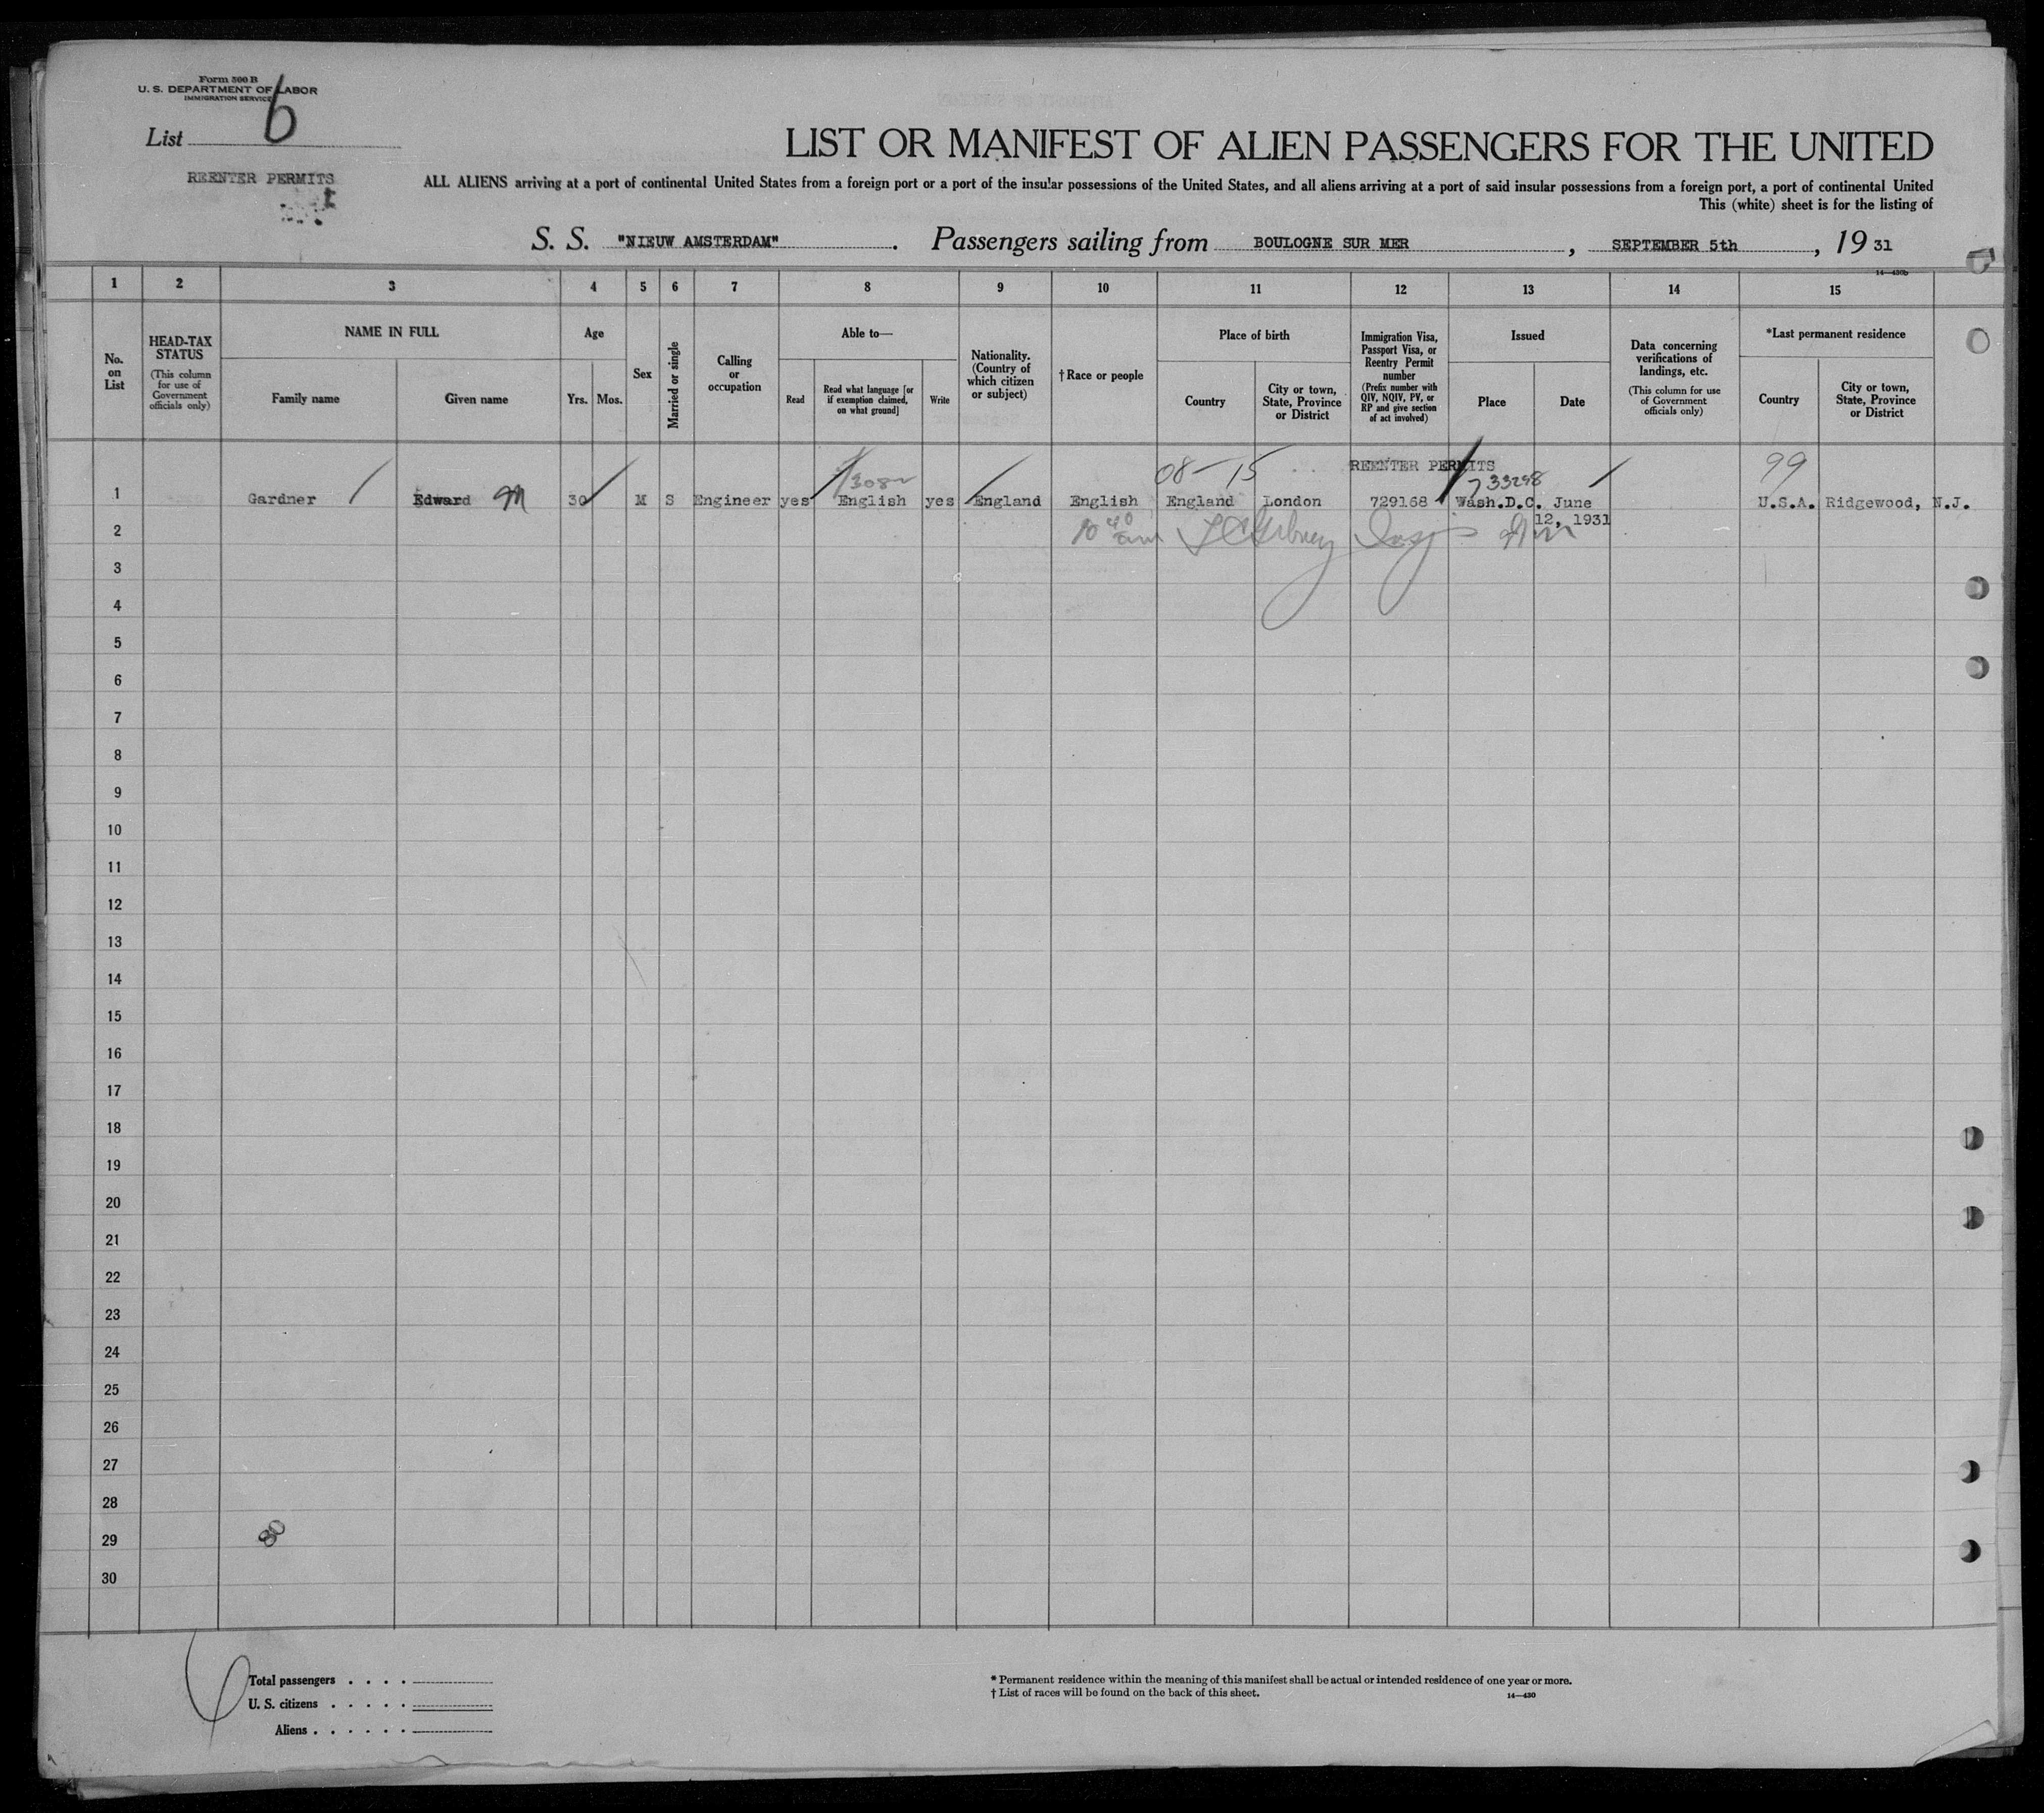 Form 500 B
U. S. DEPARTMENT OF LABOR
IMMIGRATION SERVICE
List 6
REENTER PERMITS
LIST OR MANIFEST OF ALIEN PASSENGERS FOR THE UNITED
ALL ALIENS arriving at a port of continental United States from a foreign port or a port of the insular possessions of the United States, and all aliens arriving at a port of said insular possessions from a foreign port, a port of continental United
This (white) sheet is for the listing of
S. S. "NIEUW AMSTERDAM". Passengers sailing from BOULOGNE SUR MER, SEPTEMBER 5th, 19 31
14—430b
1 2 3 4 5 6 7 8 9 10 11 12 13 14 15
No. on List
HEAD-TAX STATUS
(This column for use of Government officials only)
NAME IN FULL
Family name
Given name
Age
Yrs. Mos.
Sex
Married or single
Calling or occupation
Able to—
Read
Read what language [or if exemption claimed, on what ground]
Write
Nationality. (Country of which citizen or subject)
† Race or people
Place of birth
Country
City or town, State, Province or District
Immigration Visa, Passport Visa, or Reentry Permit number
(Prefix number with QIV, NQIV, PV, or RP and give section of act involved)
Issued
Place
Date
Data concerning verifications of landings, etc.
(This column for use of Government officials only)
*Last permanent residence
Country
City or town, State, Province or District
08-15 REENTER PERMITS 99
733298
1 Gardner Edward M 30 M S Engineer yes English yes England English England London 729168 Wash.D.C. June U.S.A. Ridgewood, N.J.
12, 1931
2
10 40 am
3
4
5
6
7
8
9
10
11
12
13
14
15
16
17
18
19
20
21
22
23
24
25
26
27
28
29
80
30
Total passengers . . . .
U. S. citizens . . . . .
Aliens . . . . . .
* Permanent residence within the meaning of this manifest shall be actual or intended residence of one year or more.
† List of races will be found on the back of this sheet.
14—430